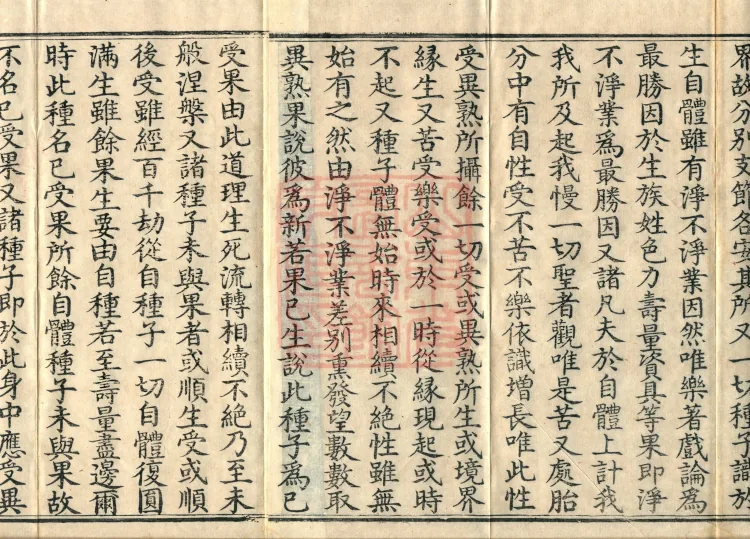 界故分別支節各安其所又一切種子識於
生自體雖有淨不淨業因然唯樂著戲論為
最勝因於生族姓色力壽量資具等果即淨
不淨業為最勝因又諸凡夫於自體上計我
我所及起我慢一切聖者觀唯是苦又處胎
分中有自性受不苦不樂依識增長唯此性
受異熟所攝餘一切受或異熟所生或境界
緣生又苦受樂受或於一時從緣現起或時
不起又種子體無始時來相續不絕性雖無
始有之然由淨不淨業差別熏發望數數取
異熟果說彼為新若果已生說此種子為已
受果由此道理生死流轉相續不絕乃至未
般涅槃又諸種子未與果者或順生受或順
後受雖經百千劫從自種子一切自體復圓
滿生雖餘果生要由自種若至壽量盡邊爾
時此種名已受果所餘自體種子未與果故
不名已受果又諸種子即於此身中應受異